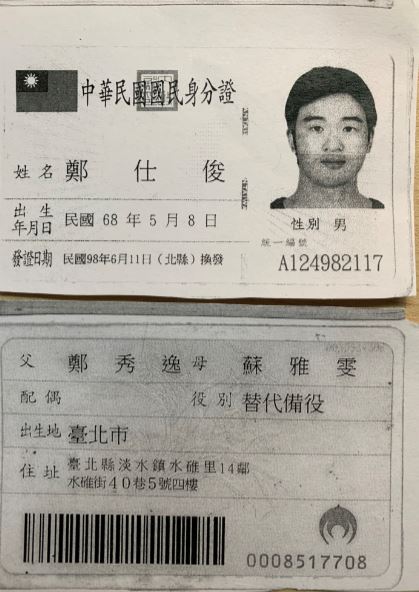 中華民國國民身分證
姓名 鄭仕俊
出生年月日 民國68年5月8日
性別 男
統一編號
發證日期 民國98年6月11日（北縣）換發
A124982117
父 鄭秀逸 母 蘇雅雯
配偶 役別 替代備役
出生地 臺北市
住址 臺北縣淡水鎮水碓里14鄰
水碓街40巷5號四樓
0008517708